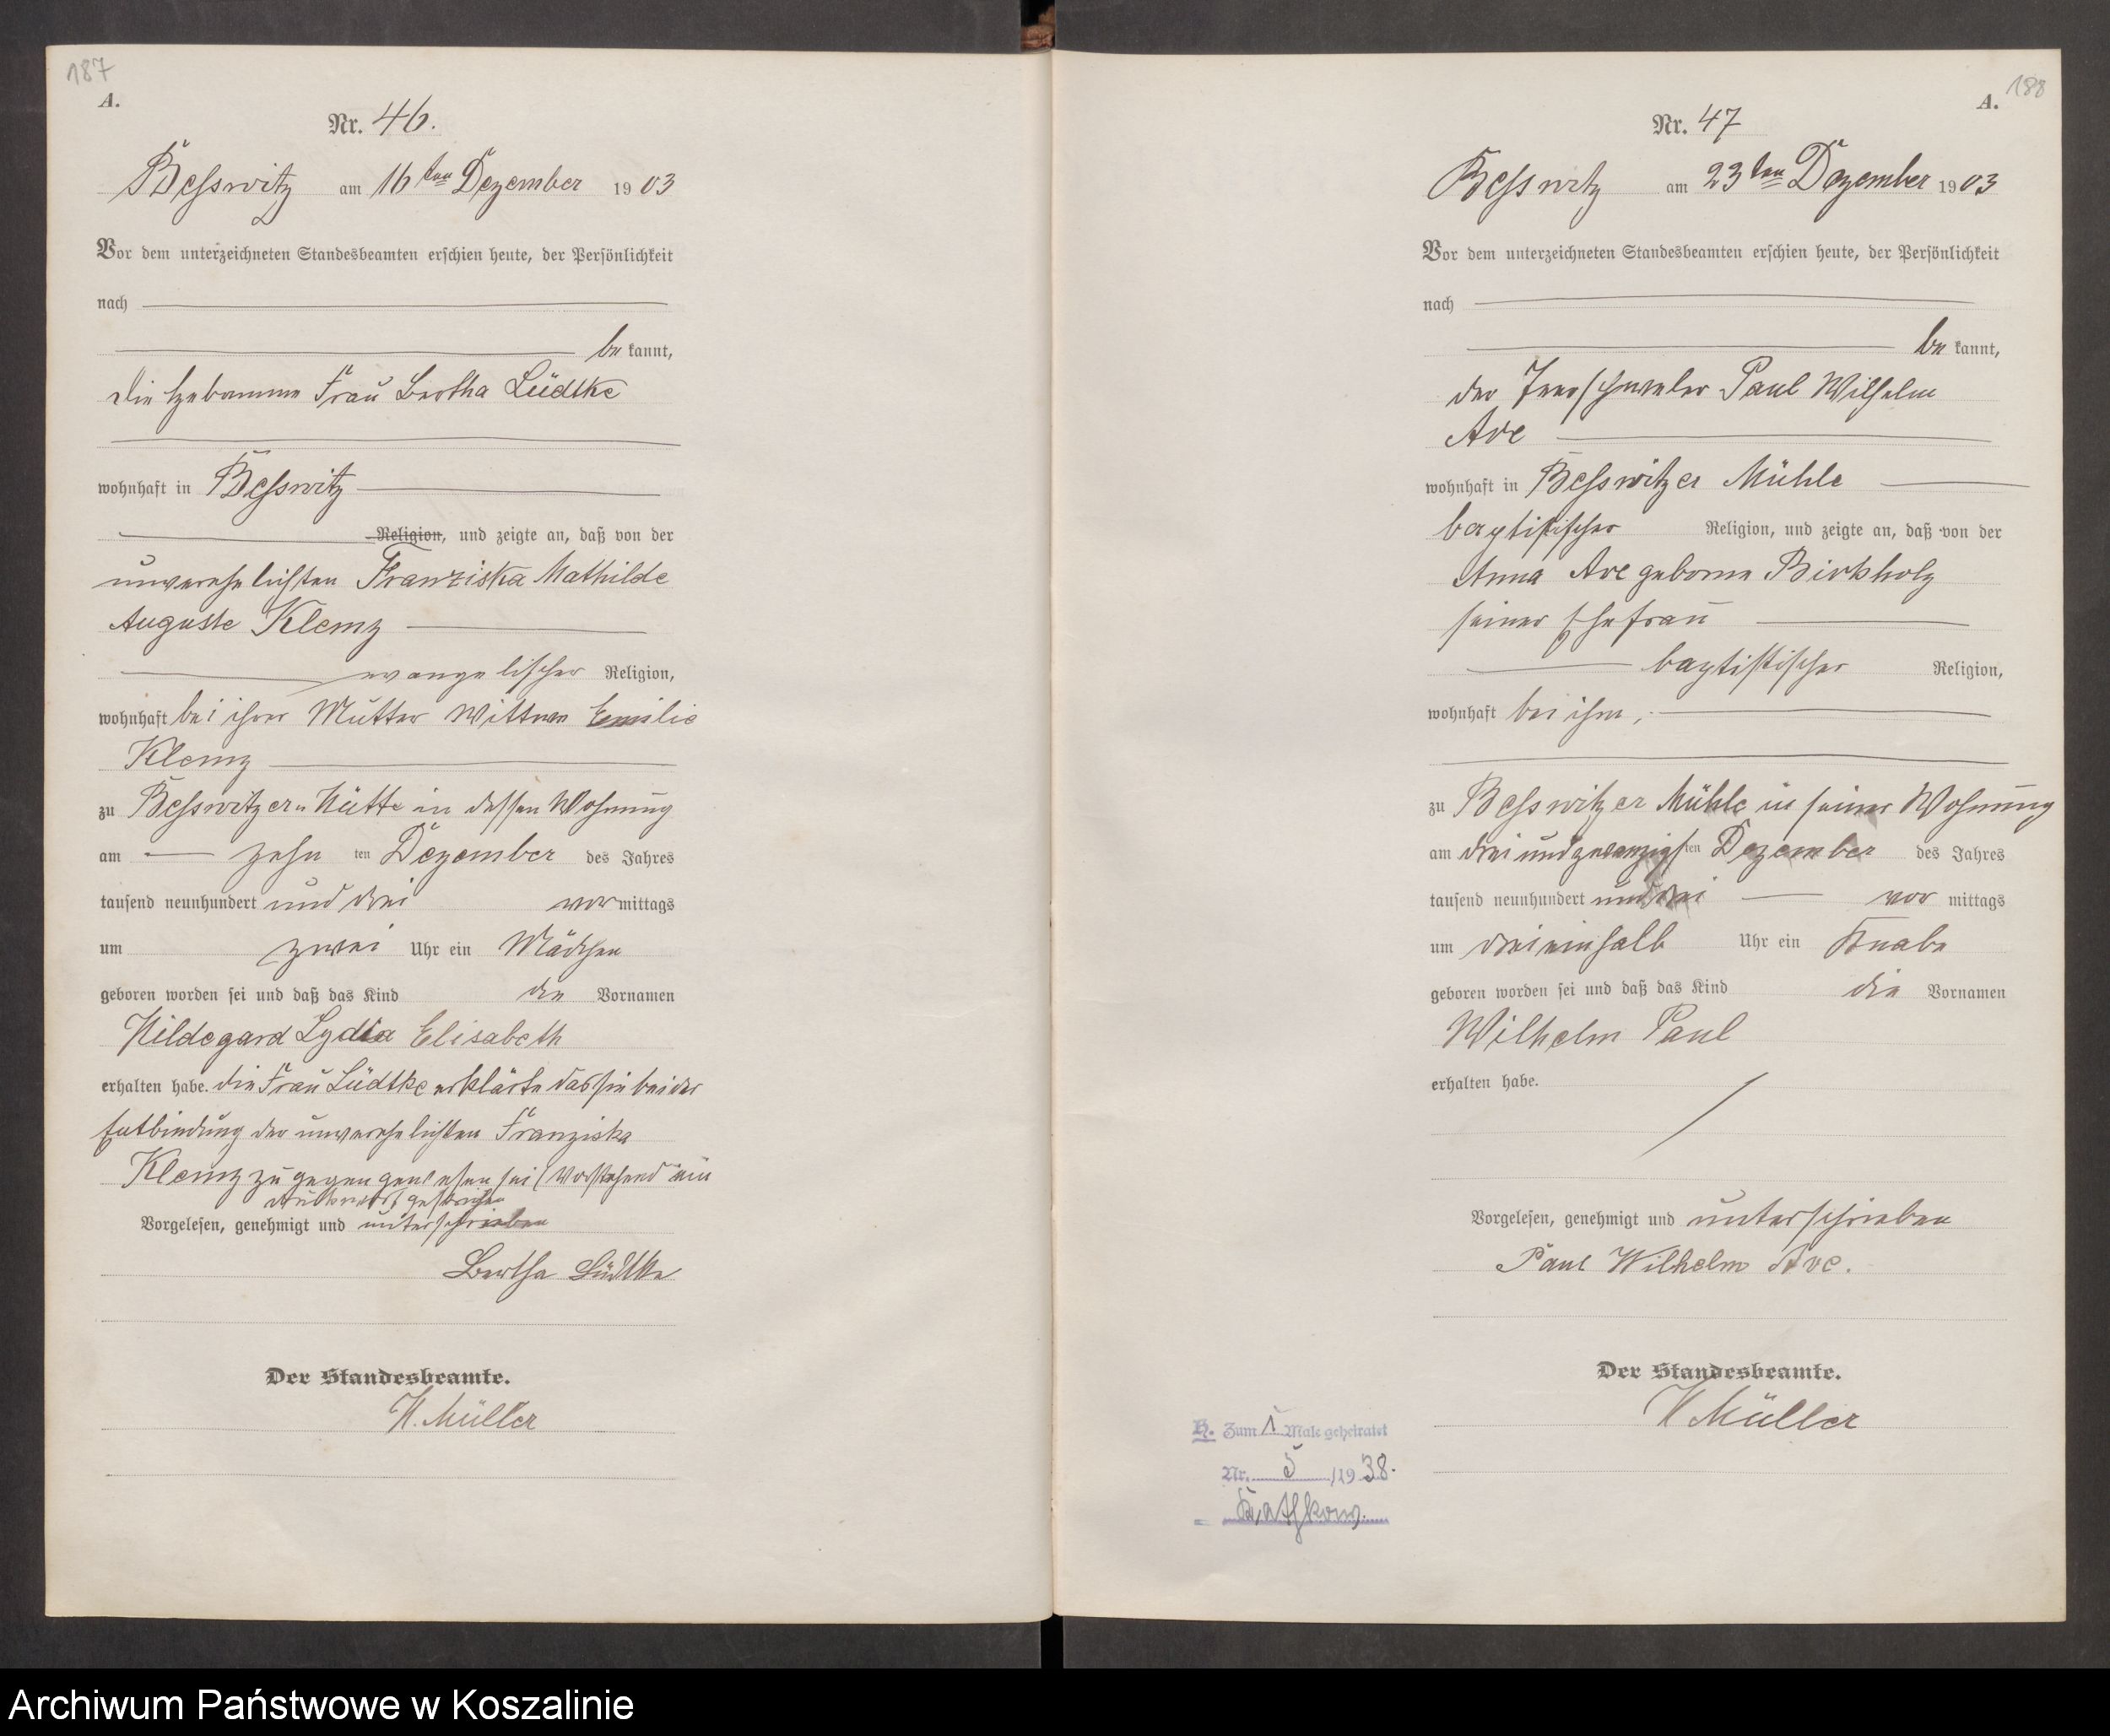 187
A.
Nr. 46.
Besswitz am 16ten Dezember 1903
Vor dem unterzeichneten Standesbeamten erschien heute, der Persönlichkeit
nach
be kannt,
die Hebamme Frau Bertha Lüdtke
wohnhaft in Besswitz
Religion, und zeigte an, daß von der
unverehelichten Franziska Mathilde
Auguste Klemz
evangelischer Religion,
wohnhaft bei ihrer Mutter Wittwe Emilie
Klemz
zu Besswitzer Hütte in dessen Wohnung
am zehn ten Dezember des Jahres
tausend neunhundert und drei vormittags
um zwei Uhr ein Mädchen
geboren worden sei und daß das Kind die Vornamen
Hildegard Lydia Elisabeth
erhalten habe. die Frau Lüdtke erklärte das sie bei der
Entbindung der unverehelichten Franziska
Klemz zu gegen gewesen sei (Vorstehend ein
Druckwort gestrichen
Vorgelesen, genehmigt und unterschrieben
Bertha Lüdtke
Der Standesbeamte.
H. Müller
188
A.
Nr. 47
Besswitz am 23ten Dezember 1903
Vor dem unterzeichneten Standesbeamten erschien heute, der Persönlichkeit
nach
be kannt,
der Paul Wilhelm
Ave
wohnhaft in Besswitzer Mühle
baptistischer Religion, und zeigte an, daß von der
Anna Ave geborne Birkholz
seiner Ehefrau
baptistischer Religion,
wohnhaft bei ihm,
zu Besswitzer Mühle in seiner Wohnung
am drei und zwanzigsten Dezember des Jahres
tausend neunhundert und drei vor mittags
um dreieinhalb Uhr ein Knabe
geboren worden sei und daß das Kind die Vornamen
Wilhelm Paul
erhalten habe.
Vorgelesen, genehmigt und unterschrieben
Paul Wilhelm Ave.
Der Standesbeamte.
H Müller
H. Zum 1 Male geheiratet
Nr. 5 /1938.
Archiwum Państwowe w Koszalinie